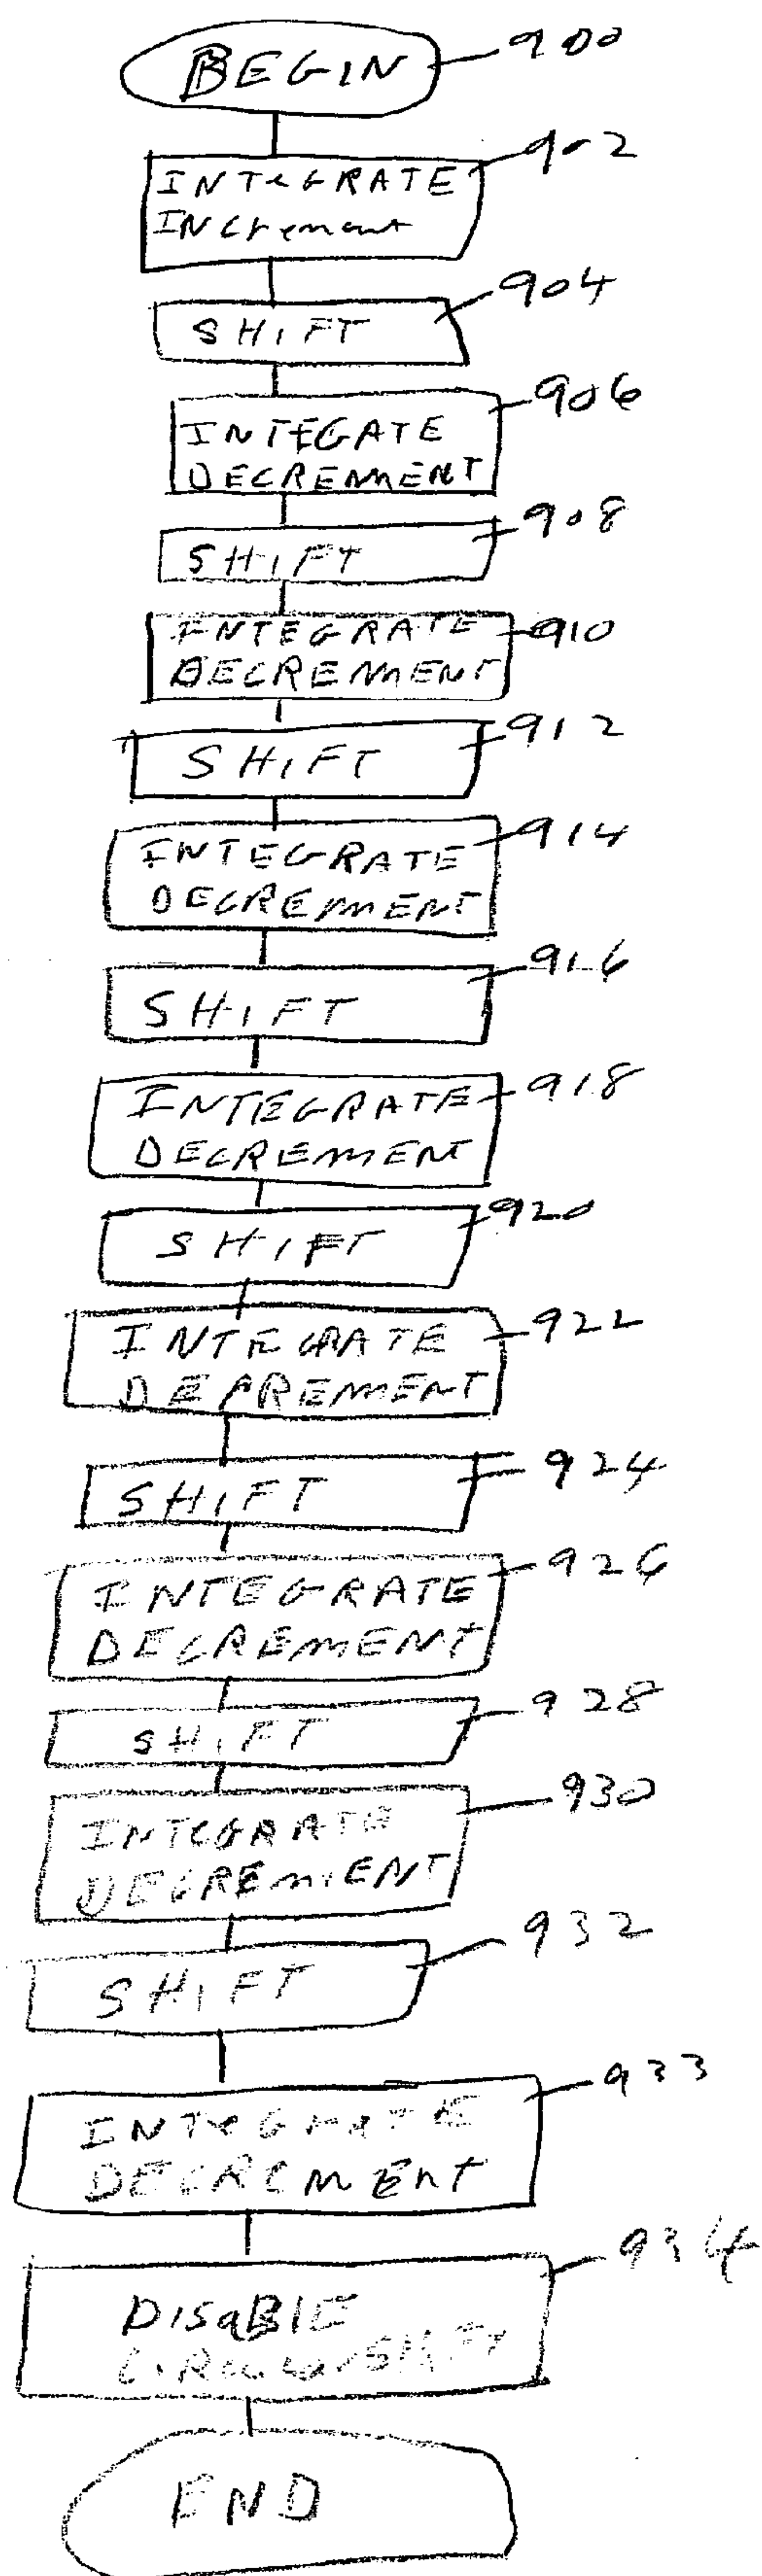 BEGIN 900
902
INTEGRATE
INCrement
904
SHIFT
906
INTEGATE
DECREMENT
908
SHIFT
INTEGRATE 910
DECREMENT
912
SHIFT
914
INTEGRATE
DECREMENT
916
SHIFT
INTEGRATE 918
DECREMENT
920
SHIFT
INTEGRATE 922
DECREMENT
924
SHIFT
926
INTEGRATE
DECREMENT
928
SHIFT
930
INTEGRATE
DECREMENT
932
SHIFT
933
INTeGrATE
DECREMENT
934
DISaBlE
SHIFT
END